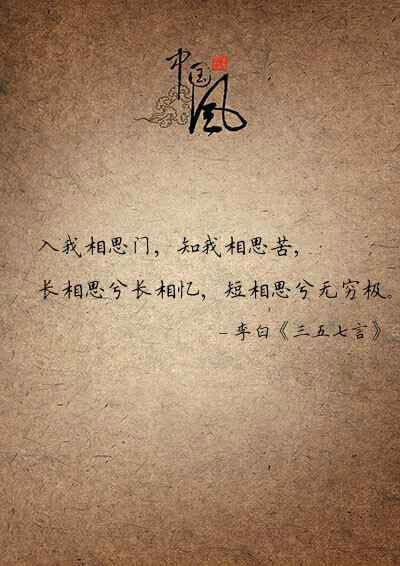 中国风
入我相思门，知我相思苦，
长相思兮长相忆，短相思兮无穷极。
–李白《三五七言》